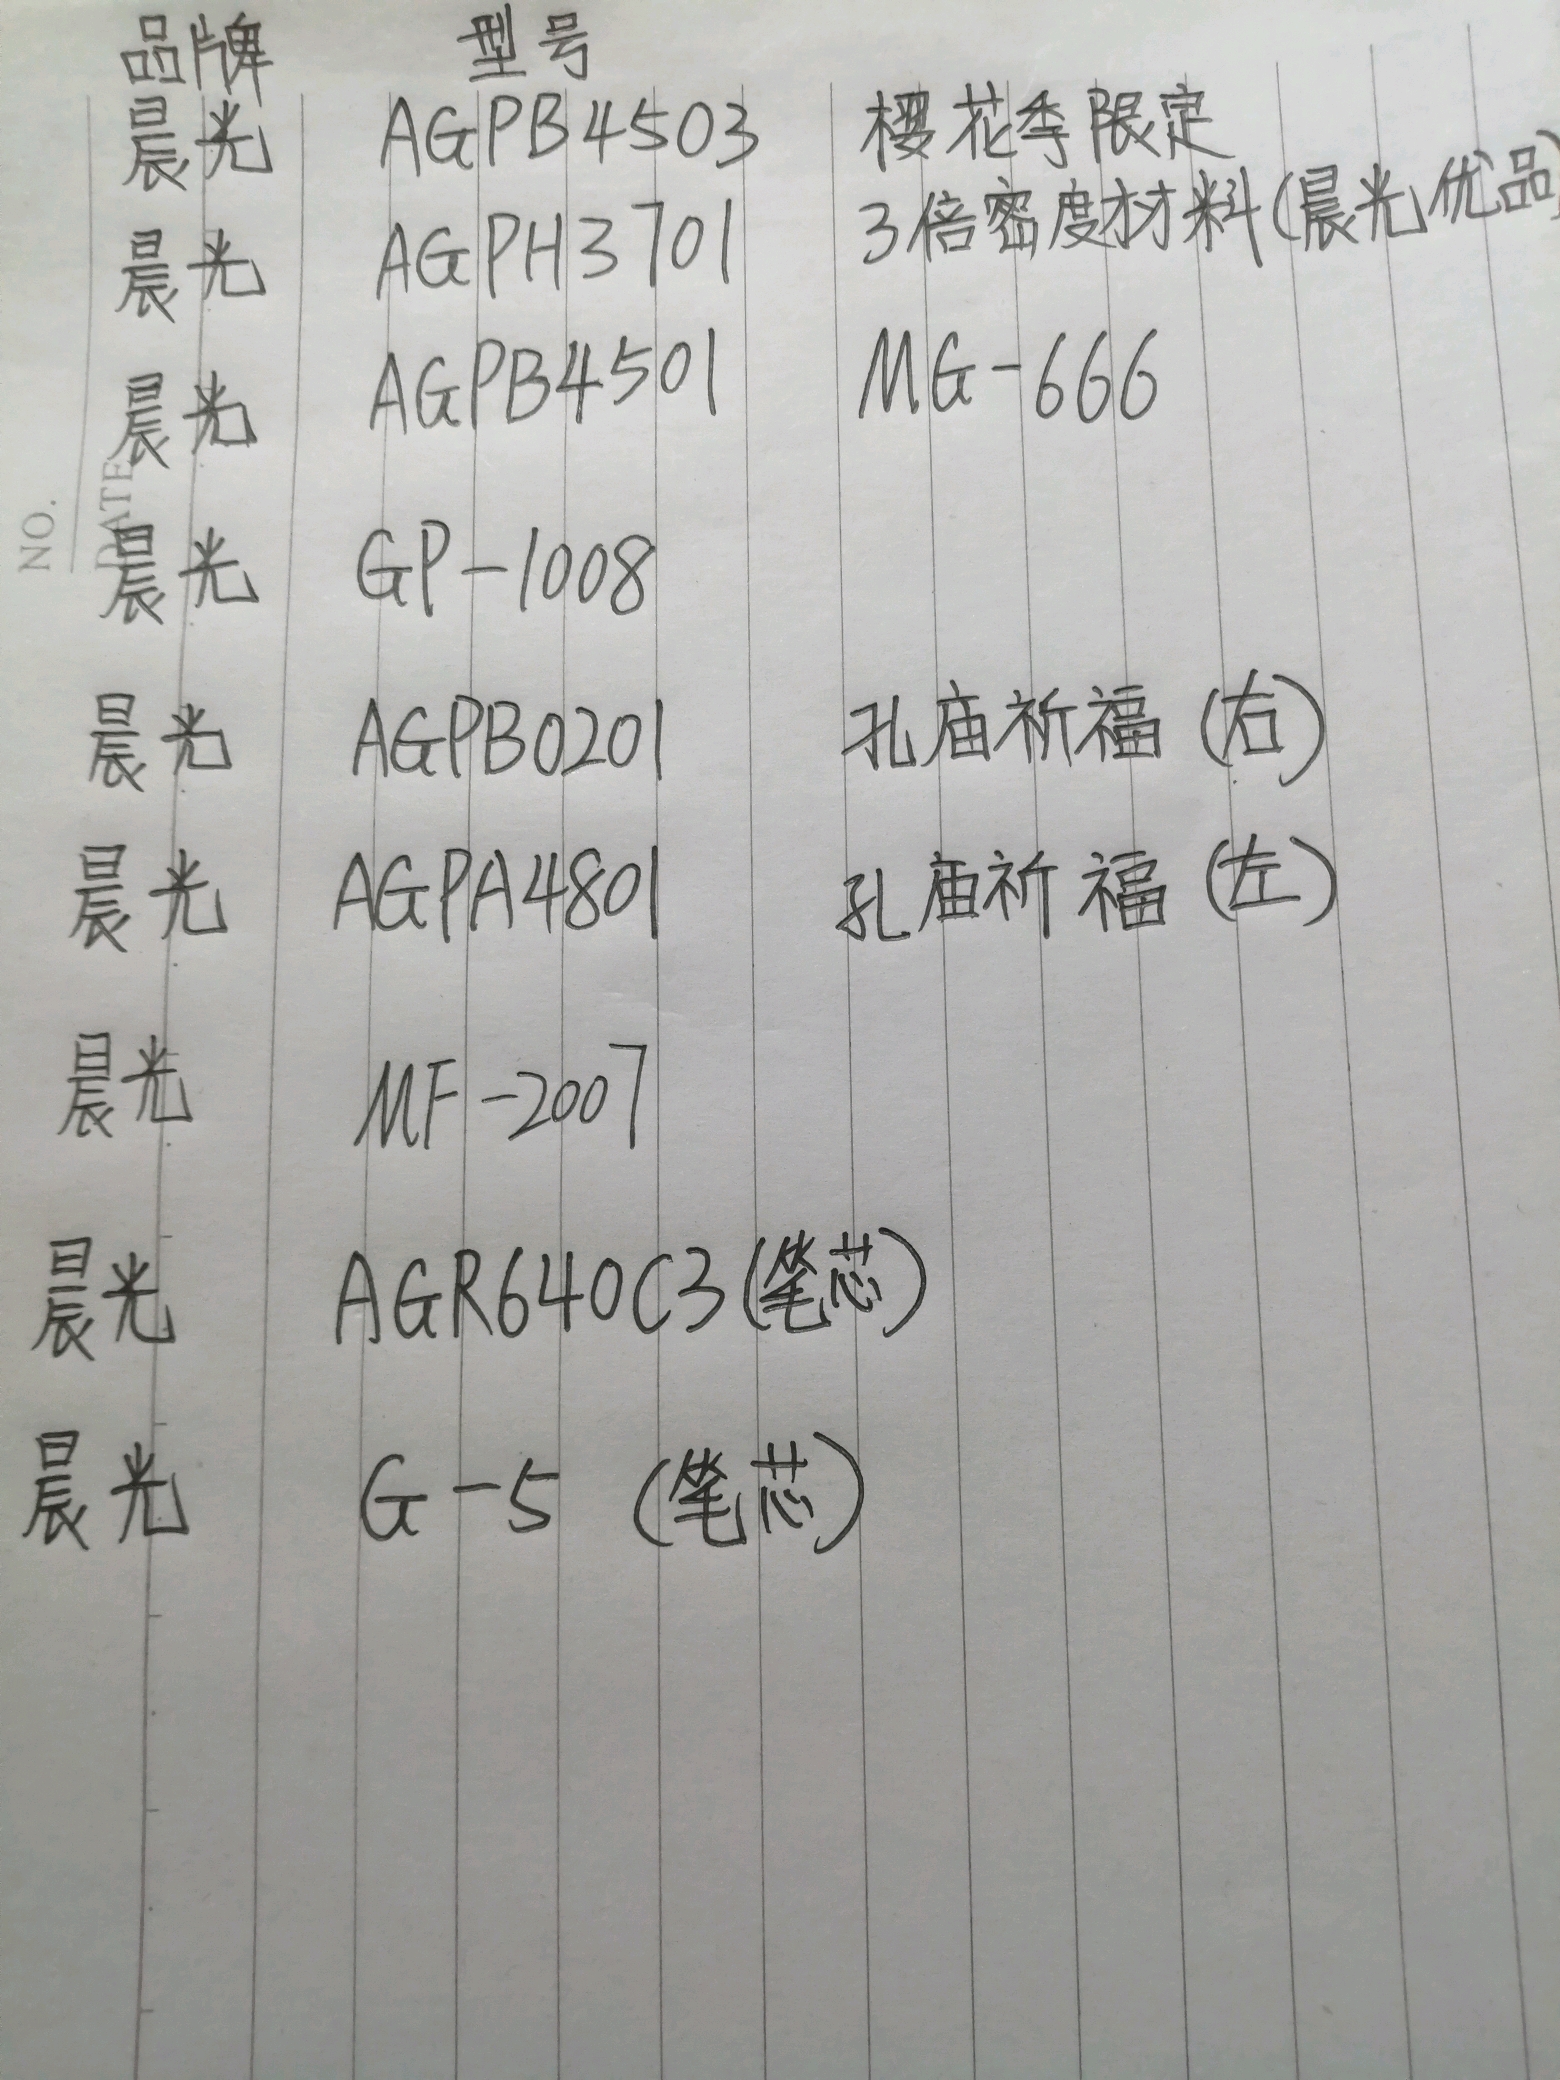 品牌 型号
晨光 AGPB4503 樱花季限定
晨光 AGPH3701 3倍密度材料(晨光优品)
晨光 AGPB4501 MG-666
NO.
DATE
晨光 GP-1008
晨光 AGPB0201 孔庙祈福(右)
晨光 AGPA4801 孔庙祈福(左)
晨光 MF-2007
晨光 AGR640C3(笔芯)
晨光 G-5 (笔芯)